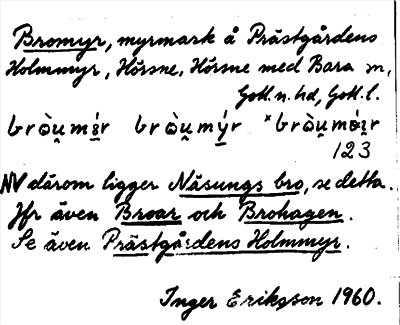 Bromyr, myrmark å Prästgårdens
Holmmyr, Hörsne, Hörsne med Bara sn,
Gotl. n. hd, Gotl. l.
bròu̯mi̊́r bròu̯mý̨r ˣbròu̯mơi̯r
123
NV därom ligger Näsungs bro, se detta.
Jfr även Broar och Brohagen.
Se även Prästgårdens Holmmyr.
Inger Eriksson 1960.